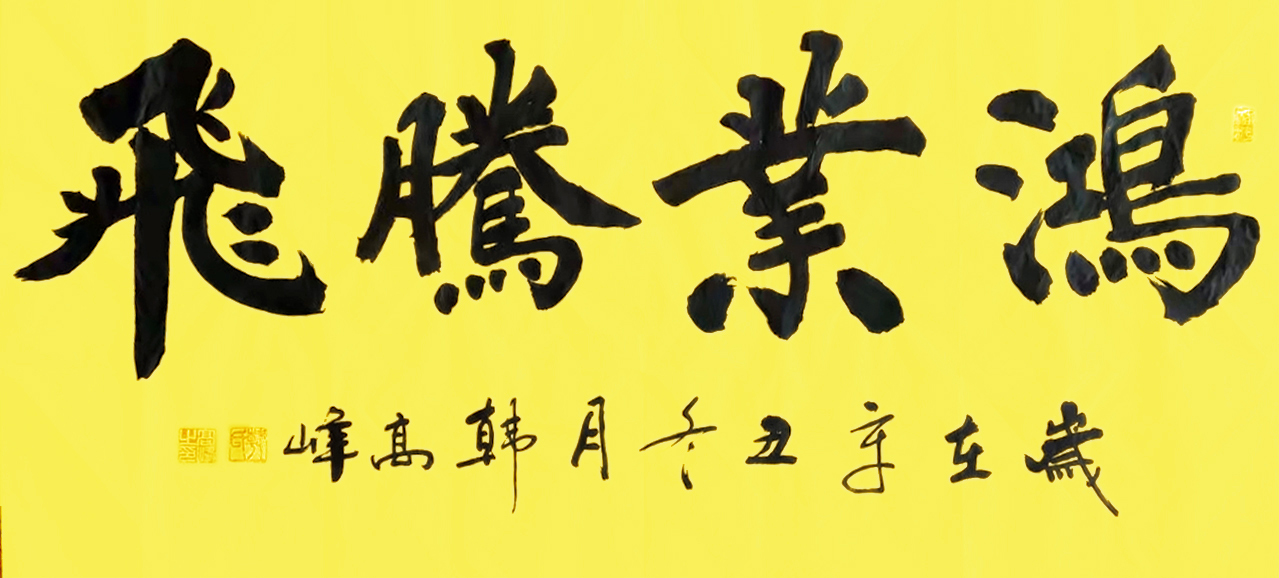 鴻業騰飛
歲在辛丑冬月韩高峰